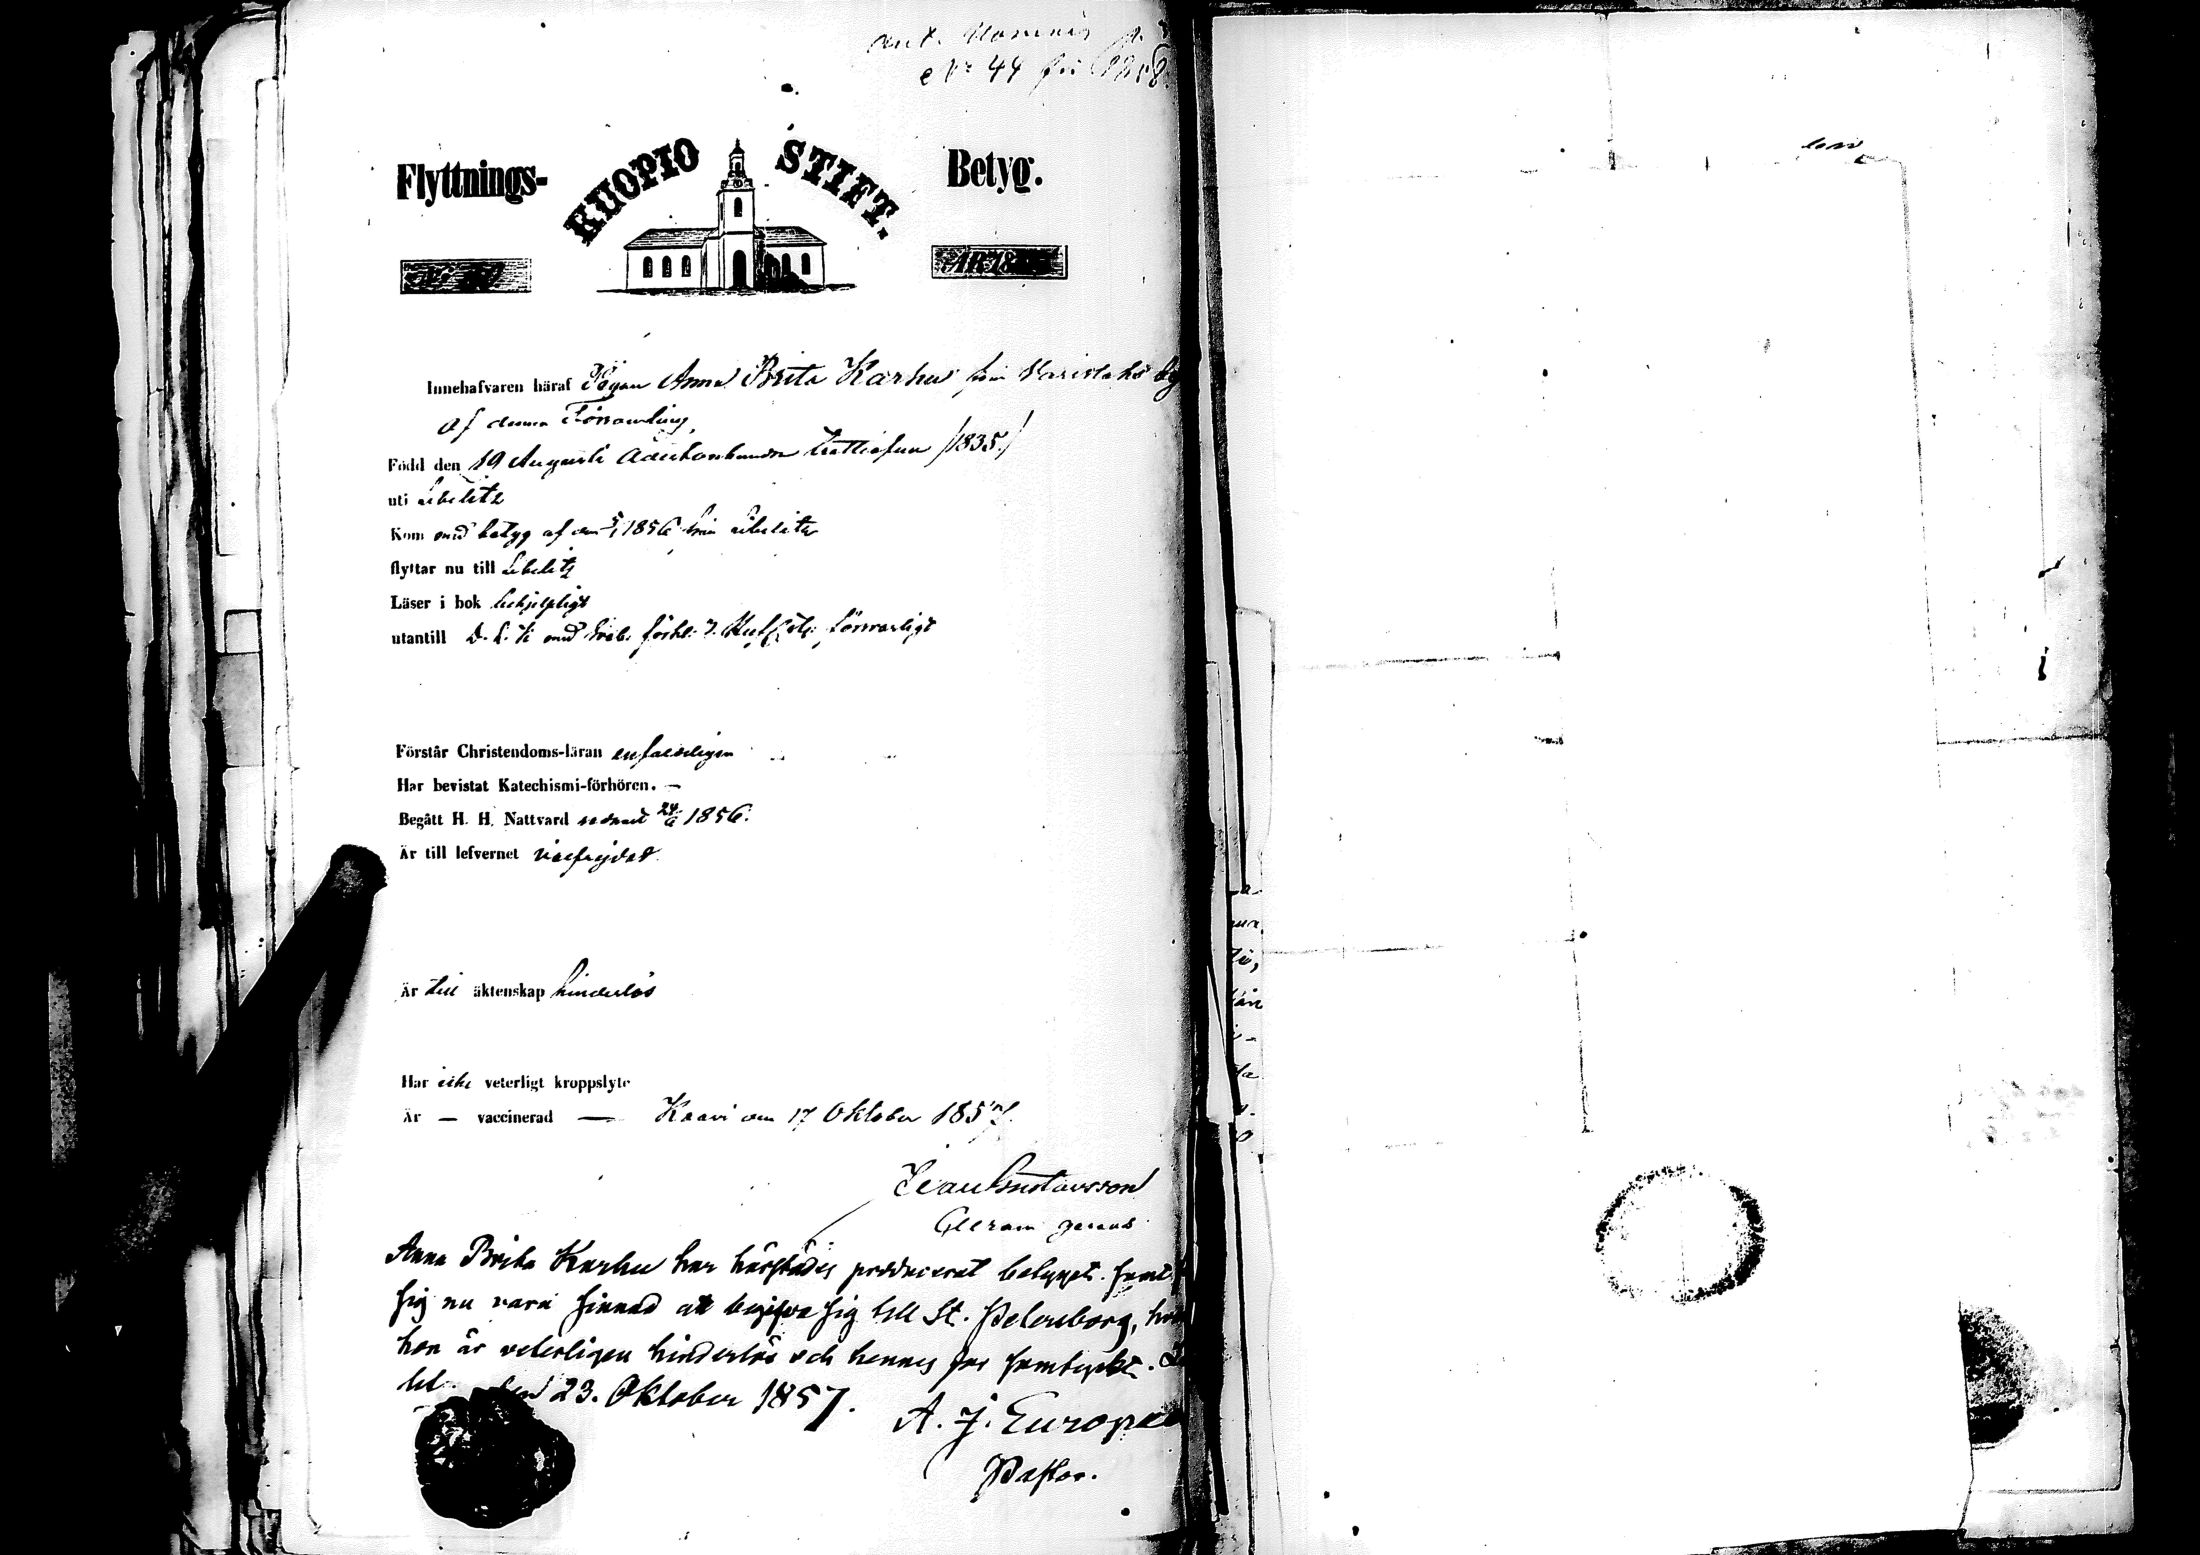 Ant. Nominis p.
No 44 för 1858.
Flyttnings- KUOPIO STIFT. Betyg.
ÅR 18
Innehafvaren häraf Pigan Anna Brita Karhu från Varislaks by
af denna Församling,
Född den 19 Augusti Adertonhundra trettiofem /1835./
uti Libelits
Kom med betyg af den 1856 från Libelits
flyttar nu till Libelits
Läser i bok behjelpligt
utantill D. L. K. med försvarligt
Förstår Christendoms-läran enfaldeligen
Har bevistat Katechismi-förhören. —
Begått H. H. Nattvard sednast 24/6 1856.
Är till lefvernet väifrejdad.
Är till äktenskap hinderlös
Har icke veterligt kroppslyte
Är — vaccinerad — Kaavi den 17 Oktober 1857.
Gustavsson
Anna Brita Karhu har härstädes producerat betyget samt
sig nu vara sinnad att begifva sig till St. Petersborg,
hon är veterligen hinderlös och hennes samtyckt.
den 23. Oktober 1857.
A. J. Europae
Pastor.